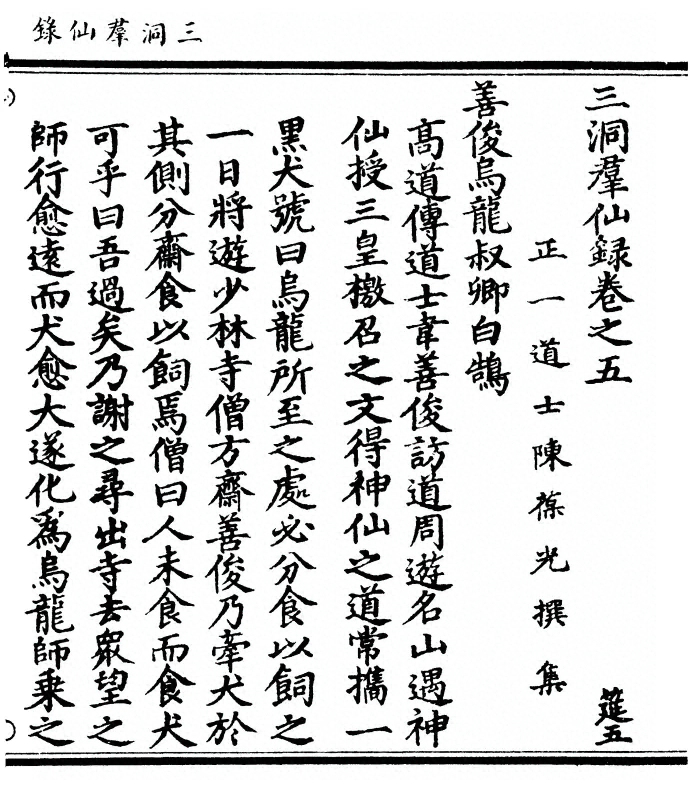 三洞羣仙錄
三洞羣仙録卷之五
筵五
正一道士陳葆光撰集
善俊烏龍叔卿白鵠
高道傳道士韋善俊訪道周遊名山遇神
仙授三皇檄召之文得神仙之道常攜一
黑犬號曰烏龍所至之處必分食以飼之
一日將遊少林寺僧方齋善俊乃牽犬於
其側分齋食以飼焉僧曰人未食而食犬
可乎曰吾過矣乃謝之尋出寺去衆望之
師行愈遠而犬愈大遂化爲烏龍師乗之